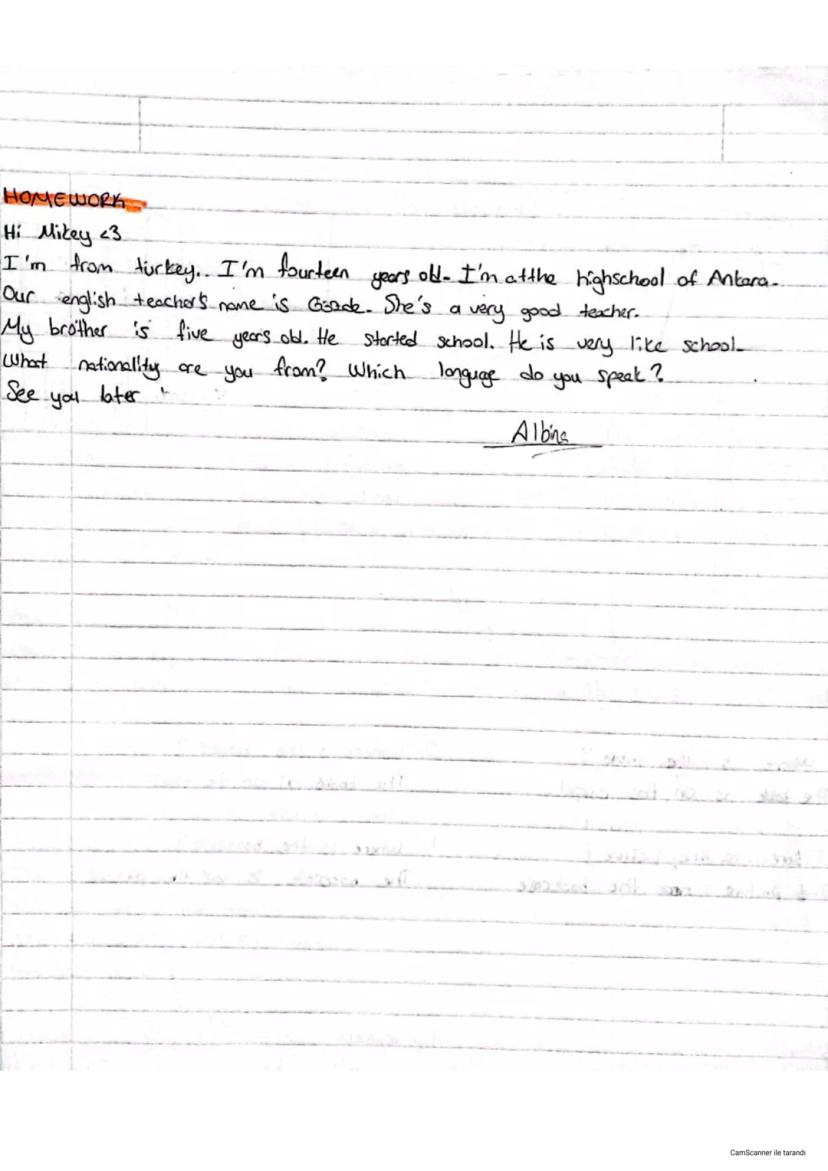 HOMEWORK
Hi Mikey <3
I'm from turkey.. I'm fourteen years old. I'm at the highschool of Ankara.
Our english teacher's name is Gözde. She's a very good teacher.
My brother is five years old. He started school. He is very like school.
What nationality are you from? Which language do you speak?
See you later
Albina
CamScanner ile tarandı